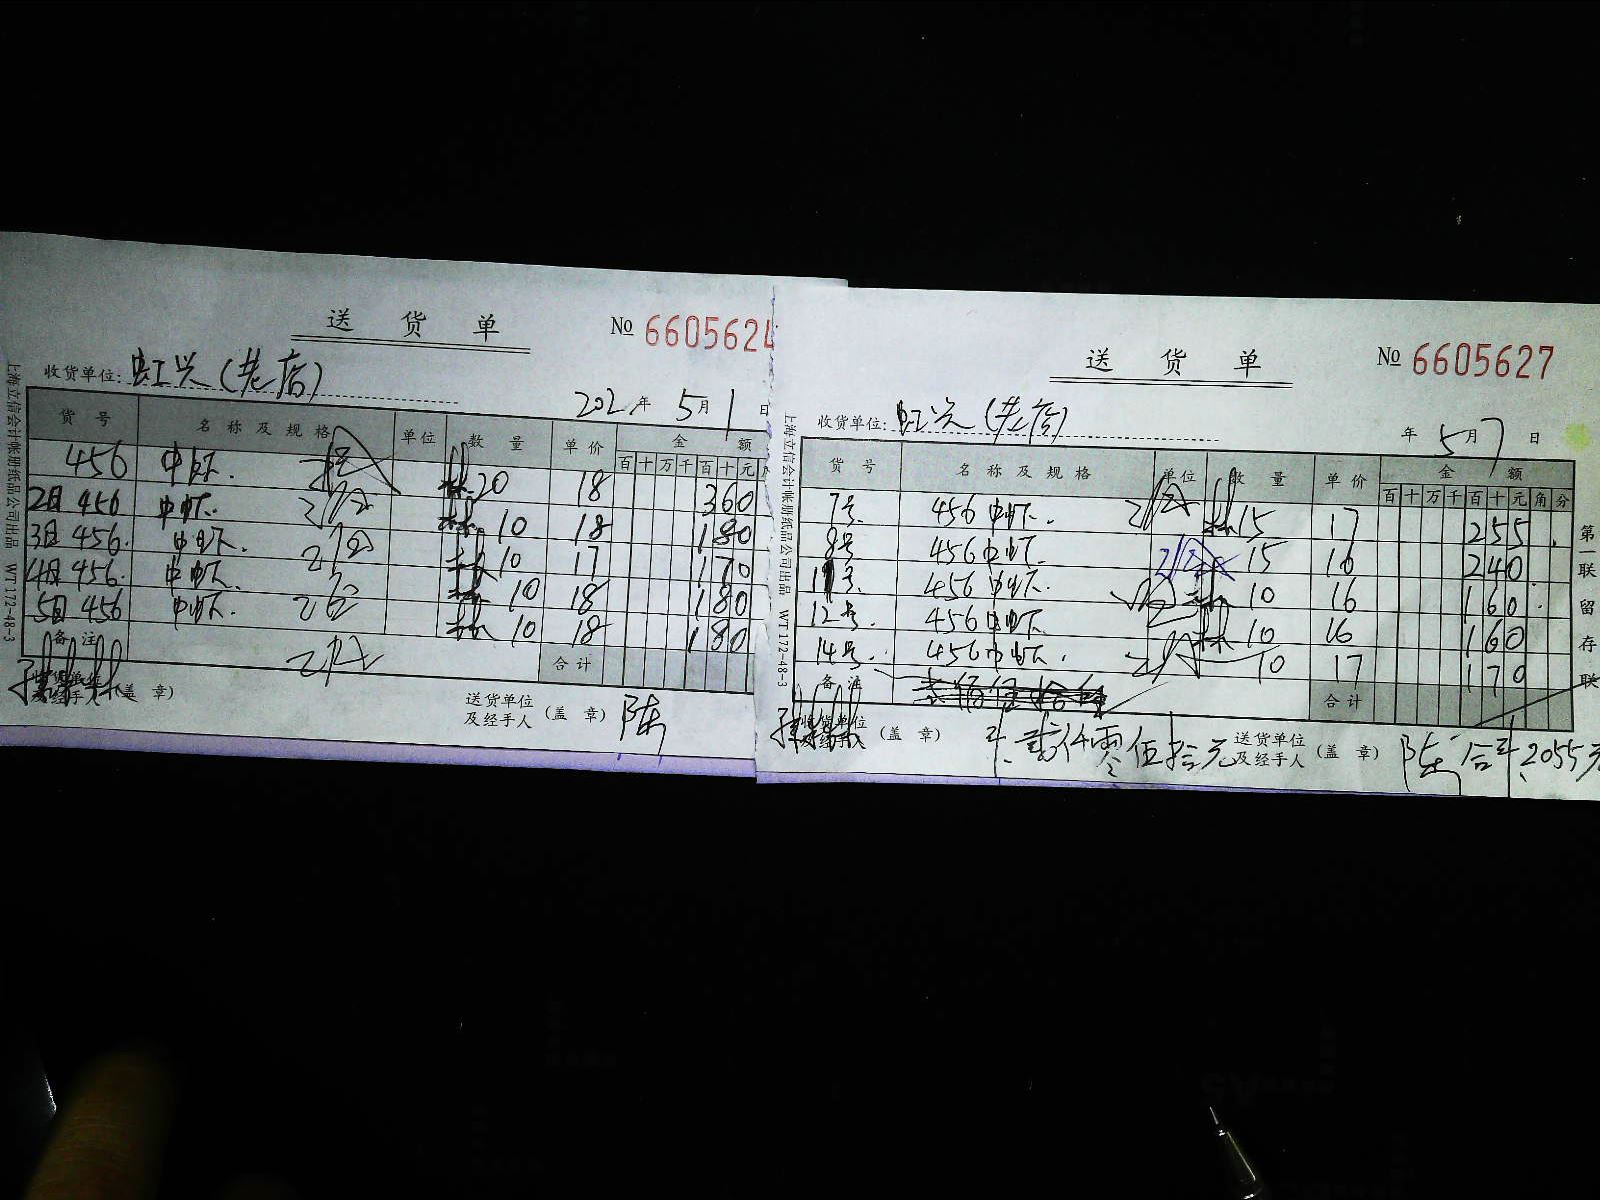 送货单
№ 660562
收货单位: 虹兴(老店)
202 年 5月 1 日
货号 名称及规格 单位 数量 单价 金额
百十万千百十元
456 中虾. 20 18 360
2日 456 中虾. 10 18 180
3日 456. 中虾. 10 17 170
4日 456. 中虾. 10 18 180
5日 456 中虾. 10 18 180
备注 合计
(盖章) 送货单位及经手人 (盖章) 陈
上海立信会计帐册纸品公司出品 WT 172-48-3
送货单
№ 6605627
收货单位: 虹兴(老店)
年 5月 7 日
货号 名称及规格 单位 数量 单价 金额
百十万千百十元角分
7号. 456 中虾. 15 17 255
8号 456 中虾. 15 16 240
11号 456 中虾. 10 16 160
12号. 456 中虾. 10 16 160
14号. 456 中虾. 10 17 170
备注 合计
收货单位及经手人 (盖章) 贰仟零伍拾元 送货单位及经手人 (盖章) 陈 合计 2055元
上海立信会计帐册纸品公司出品 WT 172-48-3
第一联留存联